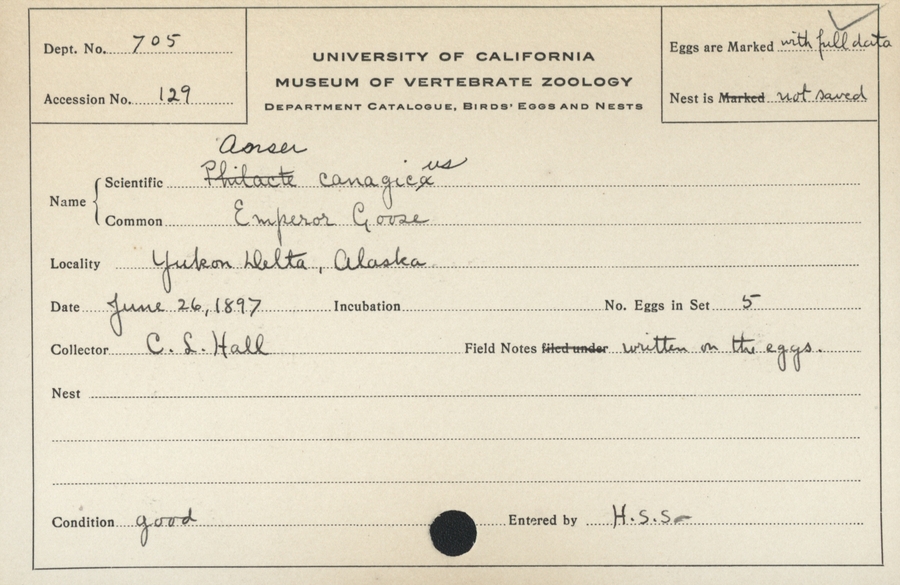 Dept. No. 705
Accession No. 129
UNIVERSITY OF CALIFORNIA
MUSEUM OF VERTEBRATE ZOOLOGY
DEPARTMENT CATALOGUE, BIRDS' EGGS AND NESTS
Eggs are Marked with full data
Nest is Marked not saved
Anser
Name Scientific Philacte canagica us
Common Emperor Goose
Locality Yukon Delta, Alaska
Date June 26, 1897 Incubation No. Eggs in Set 5
Collector C. L. Hall Field Notes filed under written on the eggs.
Nest
Condition good Entered by H.S.S.